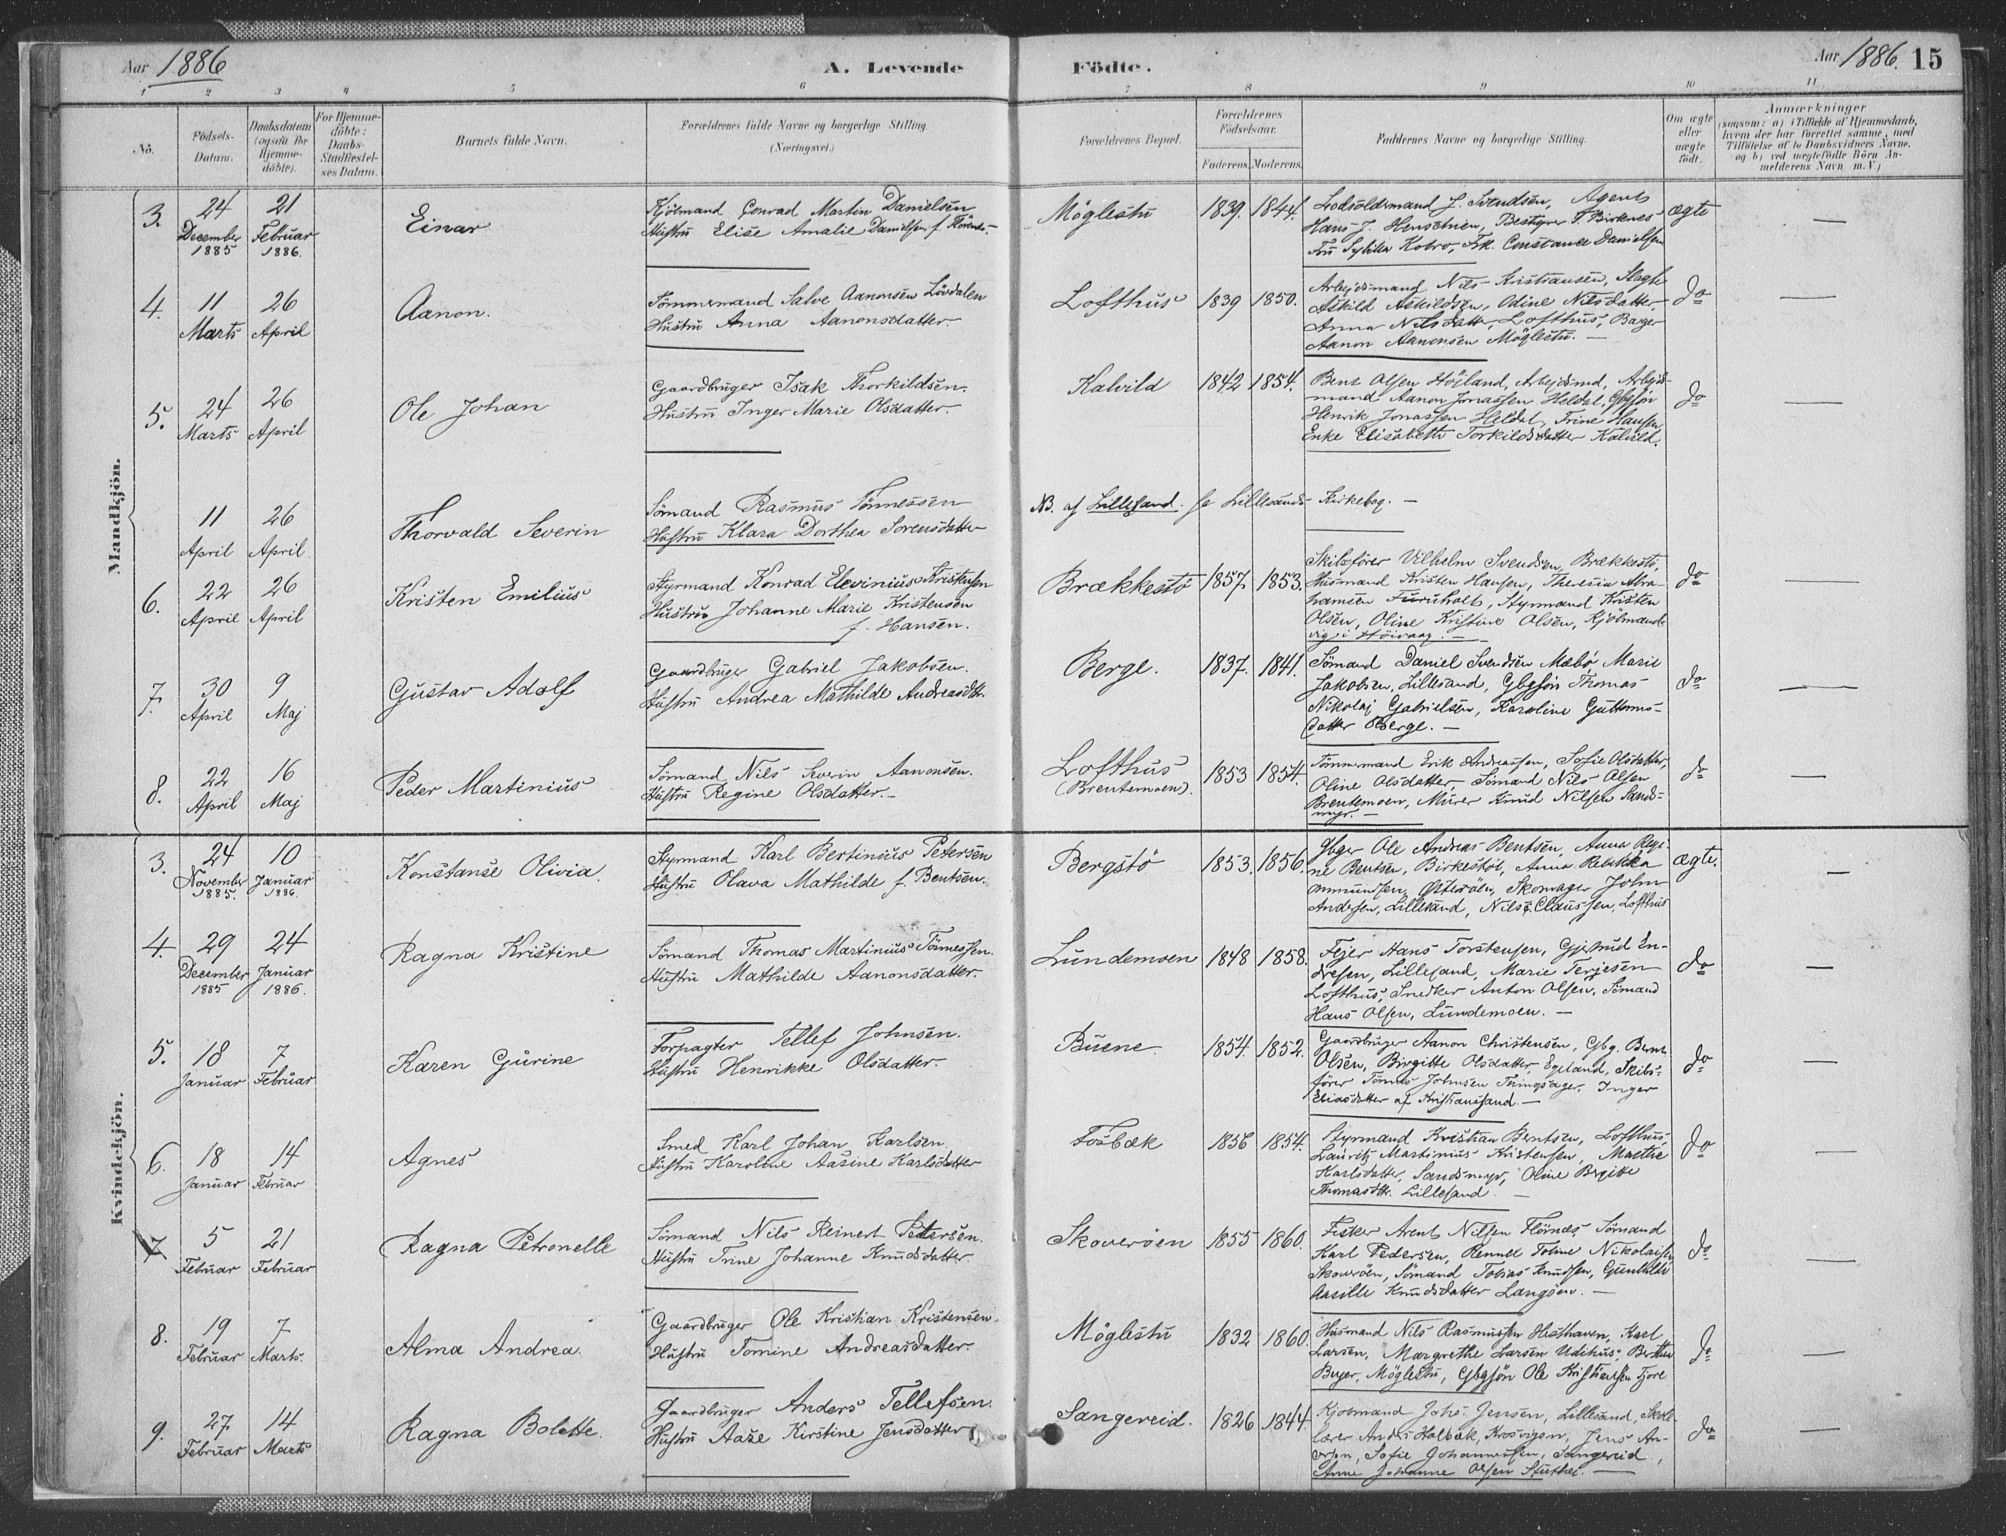 Aar 1886
A. Levende Födte.
Aar 1886. 15
1 2 3 4 5 6 7 8 9 10 11
No.
Födsels-Datum.
Daabsdatum (ogsaa for Hjemme-döbte).
For Hjemme-döbte: Daabs-Stadfæstel-ses Datum.
Barnets fulde Navn.
Forældrenes fulde Navne og borgerlige Stilling (Næringsvei.)
Forældrenes Bopæl.
Forældrenes Födselsaar.
Faderens. Moderens.
Faddernes Navne og borgerlige Stilling.
Om ægte eller uægte födt.
Anmærkninger
(saasom: a) i Tilfælde af Hjemmedaab, hvem der har forrettet samme, med Tilföielse af to Daabsvidners Navne. og b) ved uægtefödte Börn An-melderens Navn m.V.)
Mandkjön.
3. 24 December 1885 21 Februar 1886. Einar
Kjöbmand Conrad Martin Danielsen
Hustru Elise Amalie Danielsen f.
Möglestu 1839. 1844.
Lodsoldermand J. Svendsen, Agent
Hans J. Henschien, Bestyrer F. Birknes
Fru Sybilla Kobro, Frk. Constance Danielsen
ægte —
4. 11 Marts 26 April Aanon.
Tömmermand Salve Aanonsen Lövdalen
Hustru Anna Aanonsdatter.
Lofthus 1839 1850.
Arbejdsmand Nils Kristiansen,
Askild Askildsen, Odine Nilsdatter,
Anna Nilsdatter, Lofthus, Bager
Aanon Aanonsen Möglestu. —
do —
5. 24 Marts 26 April Ole Johan
Gaardbruger Isak Thorkildsen.
Hustru Inger Marie Olsdatter.
Kalvild 1842 1854.
Bent Olsen Höjland, Arbejdsmd, Arbejds-
mand Aanon Jonassen Heldal, Gbrsön
Henrik Jonassen Heldal, Trine Hansen,
Enke Elisabeth Torkildsdatter Kalvild.
do —
11 April 26 April Thorvald Severin
Sömand Rasmus Tönnessen
Hustru Klara Dorthea Sorensdatter
NB. af Lillesand. se Lillesands Kirkebog. —
6. 22 April 26 April Kristen Emilius
Styrmand Konrad Elevinius Kristensen
Hustru Johanne Marie Kristensen
f. Hansen.
Brækkestö 1857. 1853.
Skibsförer Vilhelm Svendsen, Brækkestö,
Husmand Kristen Hansen, Theresia Abra-
hamsen Furuholt, Styrmand Kristen
Olsen, Oline Kristine Olsen, Kjöbmands
vig i Höivaag. —
do —
7. 30 April 9 Maj Gustav Adolf
Gaardbruger Gabriel Jakobsen.
Hustru Andrea Mathilde Andreasdtr.
Berge. 1837. 1841.
Sömand Daniel Svendsen Mæbö, Marie
Jakobsen, Lillesand, Gbrsön Thomas
Nikolaj Gabrielsen, Karoline Guttorms-
datter Berge. —
do —
8. 22 April 16 Maj Peder Martinius
Sömand Nils Severin Aanonsen.
Hustru Regine Olsdatter. —
Lofthus (Brentemoen). 1853 1854.
Tömmermand Erik Andreassen, Sofie Olsdatter,
Oline Olsdatter, Sömand Nils Olsen
Brentemoen, Murer Knud Nilsen Sands-
myr. —
do —
Kvindekjön.
3. 24 November 1885. 10 Januar 1886. Konstanse Olivia.
Styrmand Karl Bertinius Petersen
Hustru Olava Mathilde f. Bentsen.
Bergstö 1853. 1856.
Gbger Ole Andreas Bentsen, Anna Regi-
ne Bentsen, Birkestöl, Anna Rebekka
mmundsen, Österöen, Skomager John
Andersen, Lillesand, Nils Claussen, Lofthus
ægte. —
4. 29 December 1885 24 Januar 1886. Ragna Kristine
Sömand Thomas Martinius Tönnessen.
Hustru Mathilde Aanonsdatter.
Lundemoen 1848 1858.
Fejer Hans Torstensen, Gjertrud En-
dresen, Lillesand, Marie Terjesen
Lofthus, Snedker Anton Olsen, Sömand
Hans Olsen, Lundemoen. —
do —
5. 18 Januar 7 Februar Karen Gurine
Forpagter Tellef Johnsen.
Hustru Henrikke Olsdatter.
Buene. 1854. 1852.
Gaardbruger Aanon Christensen, Gbg. Bernt
Olsen, Birgitte Olsdatter, Egeland, Skibs-
förer Tönnes Johnsen Tingsager, Inger
Eliasdatter af Kristianssand. —
do —
6. 18 Januar 14 Februar Agnes
Smed Karl Johan Karlsen
Hustru Karoline Aasine Karlsdatter
Fosbæk 1856 1854.
Styrmand Kristian Berntsen, Lofthus,
Lauritz Martinius Kristensen, Marthe
Karlsdatter, Sandsmyr, Oline Birgitte
Thomasdtr. Lillesand. —
do —
7. 5 Februar 21 Februar Ragna Petronelle
Sömand Nils Reinert Pedersen.
Hustru Trine Johanne Knudsdatter
Skoveröen 1855 1860.
Fisker Arent Nilsen Flörnæs, Sömand
Karl Pedersen, Tomine Nikolaisen
Skoveröen, Sömand Tobias Knudsen, Gunhilde
Aasille Knudsdatter Langöen. —
do —
8. 19 Februar 7 Marts. Alma Andrea.
Gaardbruger Ole Kristian Kristensen.
Hustru Tomine Andreasdatter.
Möglestu 1832 1860.
Husmand Nils Rasmussen Hesthaven, Karl
Larsen, Margrethe Larsen Udehus,
Möglestu, Gbrsön Ole Kristiansen Fjore
do —
9. 27 Februar 14 Marts Ragna Bolette.
Gaardbruger Anders Tellefsen.
Hustru Aase Kirstine Jensdatter
Sangereid. 1826 1844.
Kjöbmand Johs. Jensen, Lillesand, Skole-
lærer Anders Holbæk, Jens An-
dersen, Sofie Johannessen, Sangereid,
Anne Johanne Olsen —
do —